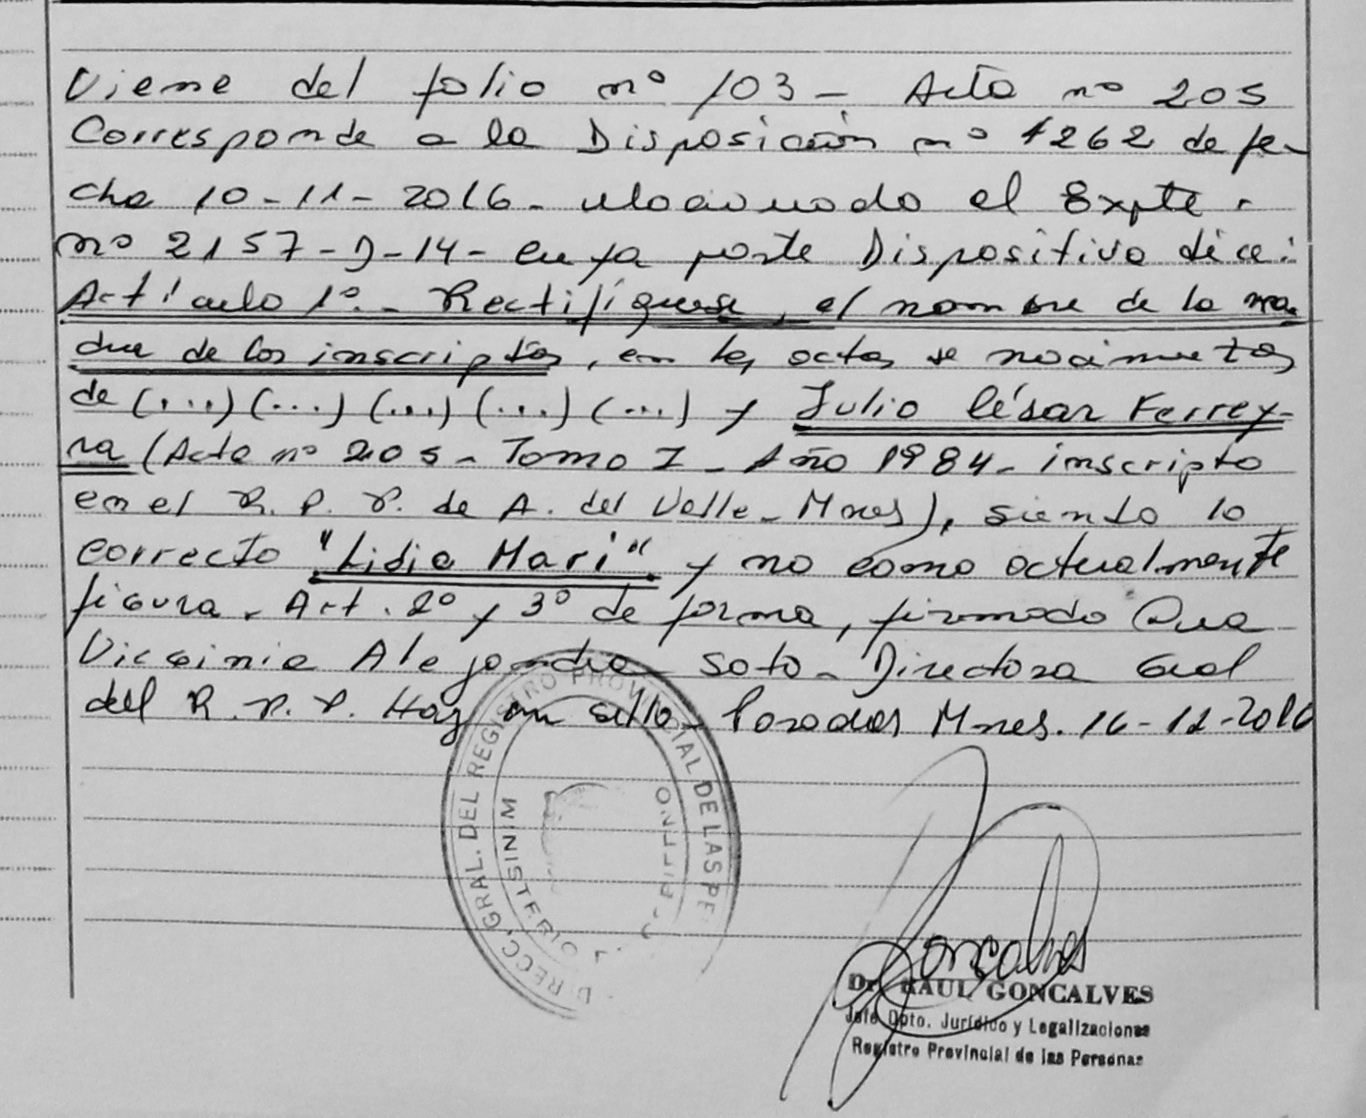 Viene del folio nº 103 - Acta nº 205
Corresponde a la Disposición nº 1262 de fe-
cha 10-11-2016 - el Expte.
nº 2157-D-14- cuya parte Dispositiva dice:
Artículo 1º.- Rectifíquese, el nombre de la ma-
dre de los inscriptos, en las actas de nacimientos
de (...) (...) (...) (...) (...) y Julio César Ferrey-
ra (Acta nº 205 - Tomo I - Año 1984 - inscripto
en el R. P. P. de A. del Valle - Mnes), siendo lo
correcto "Lidia Mari" y no como actualmente
figura. Art. 2º y 3º de forma, firmado Dra
Virginia Alejandra Soto - Directora Gral
del R. P. P. Hay un sello - Posadas Mnes. 16-12-2016
DIRECC. GRAL. DEL REGISTRO PROVINCIAL DE LAS PE
MINISTERIO
Goncalves
Dr. RAUL GONCALVES
Jefe Dpto. Jurídico y Legalizaciones
Registro Provincial de las Personas